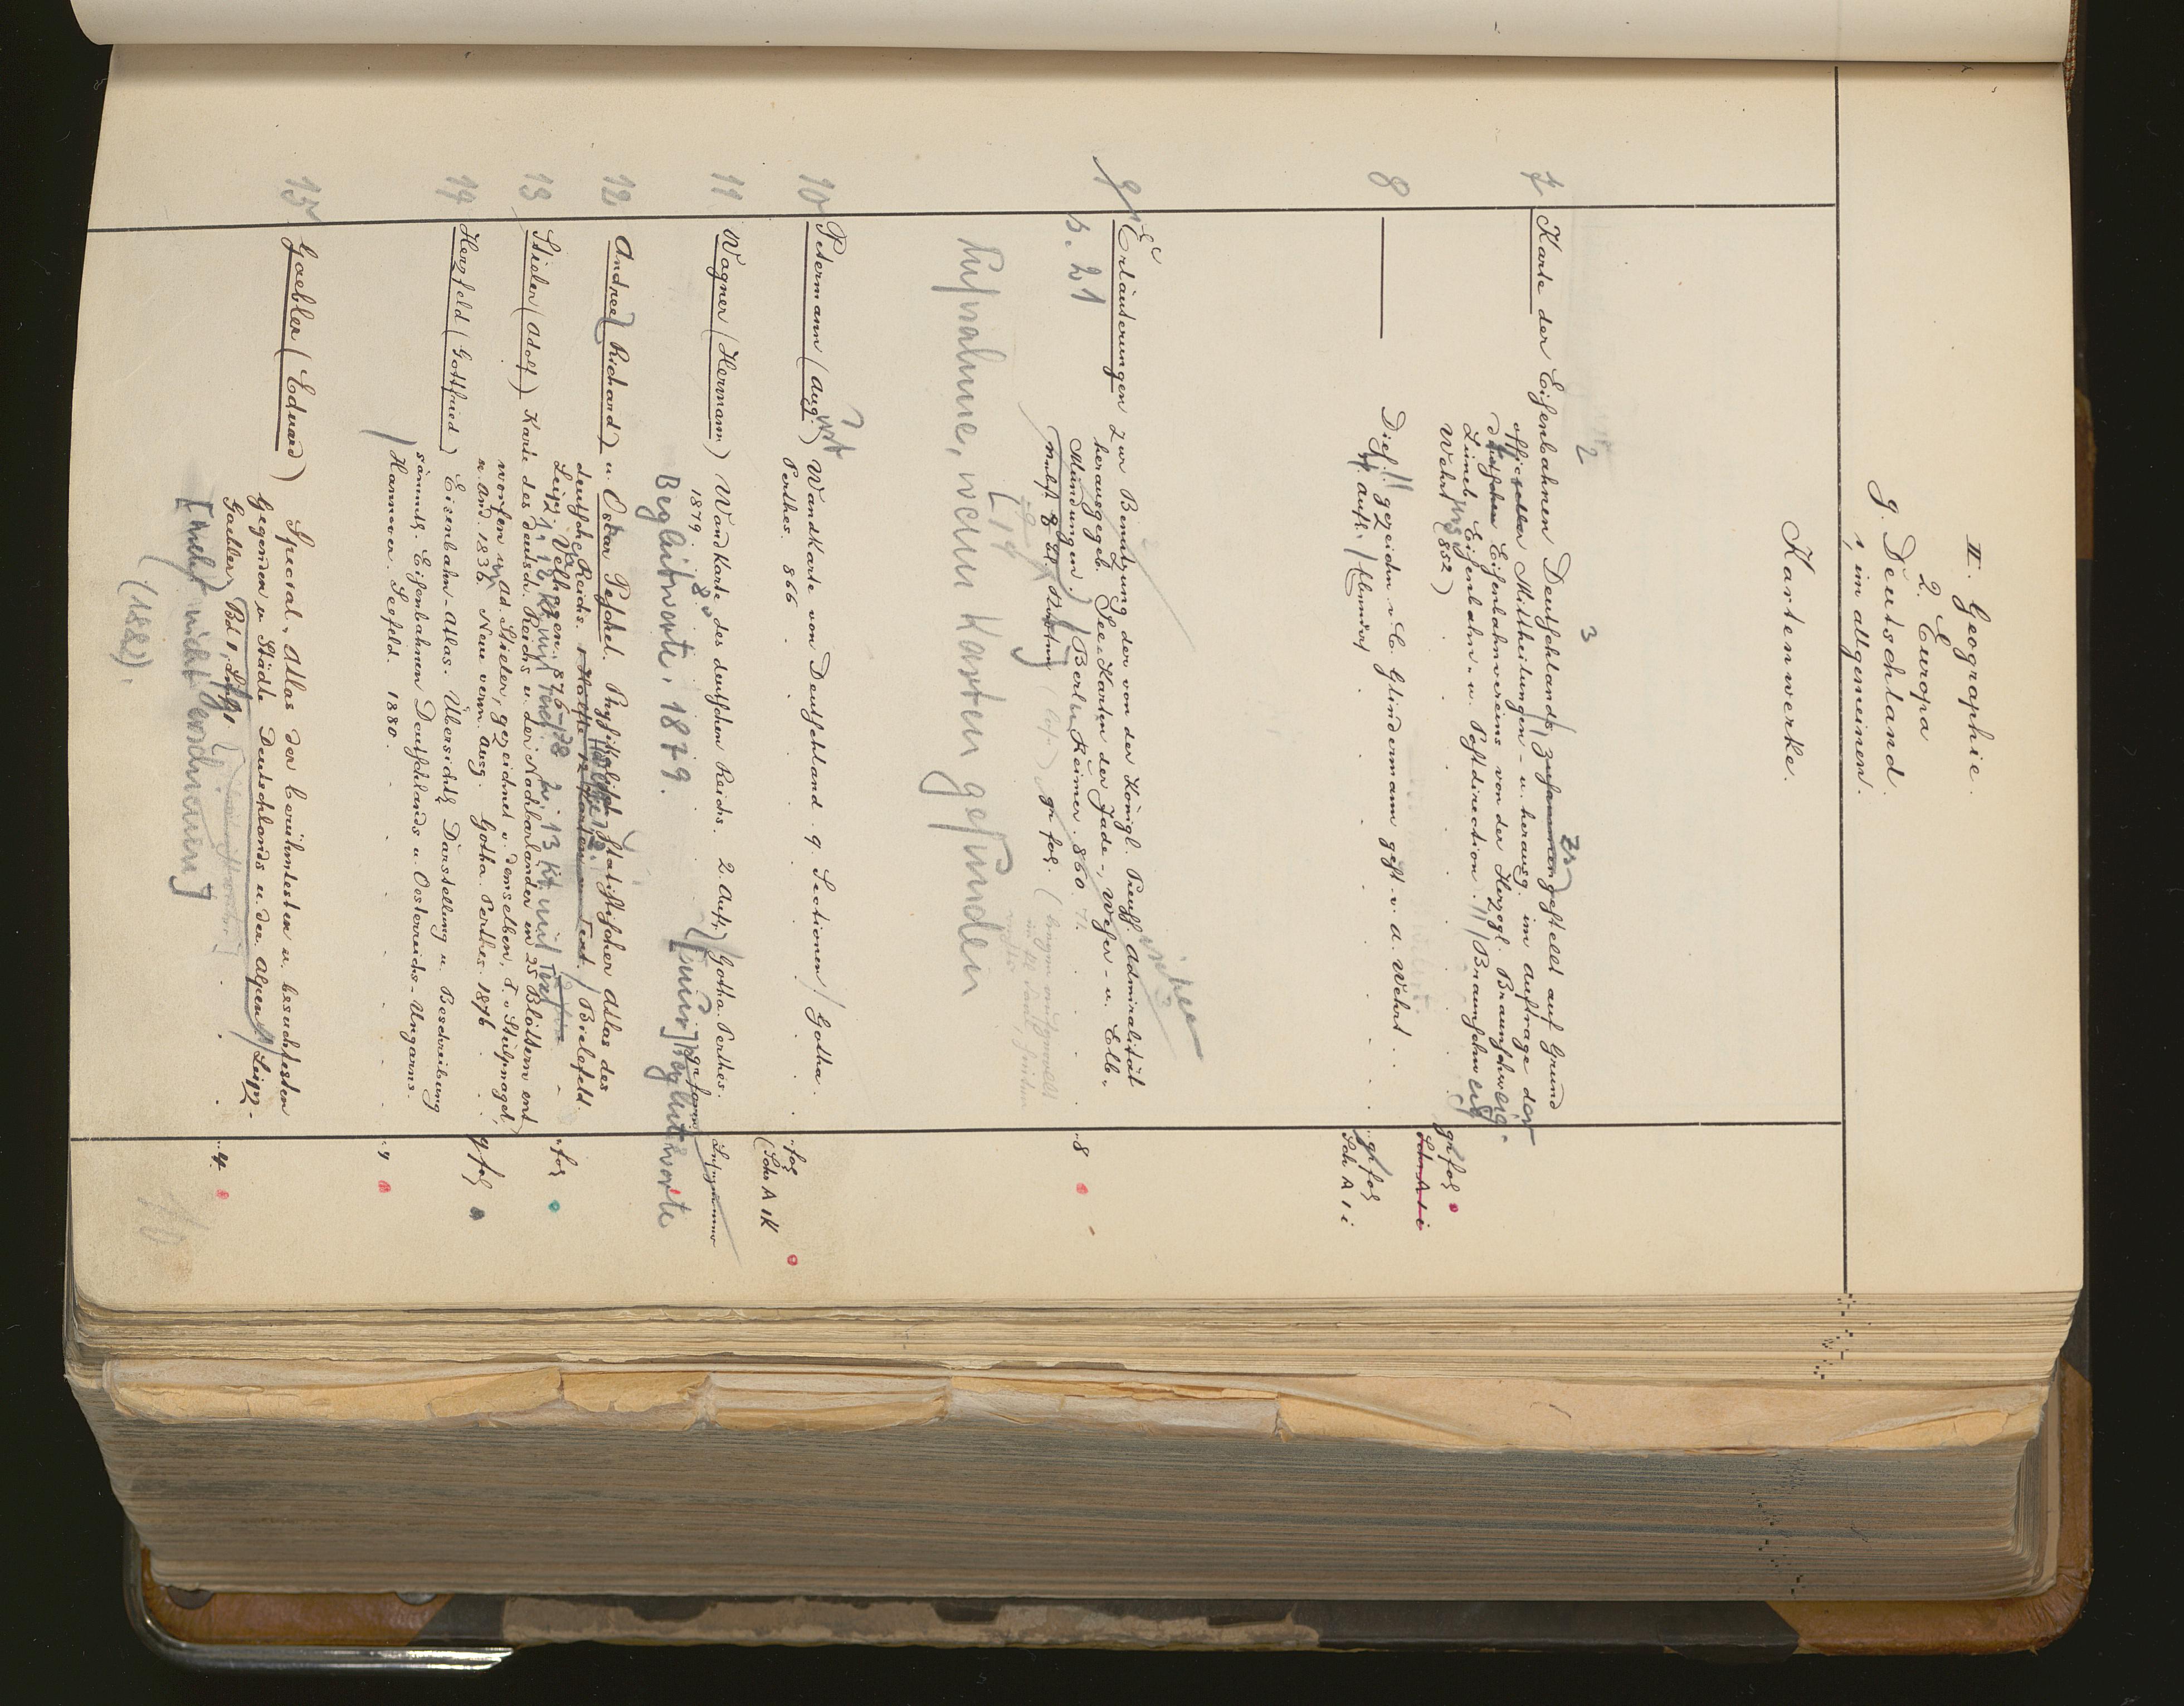 II. Geographie.
2. Europa
g. Deutschland.
1, im allgemeinen.
Kartenwerke.
2 3
7 Karte der Eisenbahnen Deutschlands, zusammengestellt auf Grund
officieller Mittheilungen u. herausg. im Auftrage der
deutschen Eisenbahnvereins von der Herzogl. Braunschweig.
Lüneb. Eisenbahn- u. Postdirection. // Braunschweig
Wehrt (852)
gr fol
Sch A 1 i
8 — Dies. // gezeichn v. C. Glindemann gest. v. A. Wehrt . .
Aufl.
gr fol
Sch A 1 i
9 Erläuterungen zur Benutzung der von der Königl. Preuss. Admiralität
herausgegeb. See-Karten der Jade-, Weser- u. Elb-
Mündungen. / Berlin Reimer. 860.
gr fol.
8
s. 21
Aufnahme, wenn Karten gefunden
10 Petermann (August) Wandkarte von Deutschland 9. Sectionen / Gotha.
Perthes. 866
fol
(Sch A 1 K
11 Wagner (Hermann) Wandkarte des deutschen Reichs. 2. Aufl. / Gotha. Perthes.
1879. 8°
Begleitworte. 1879.
[nur] Begleitworte
12 Andree (Richard) u. Oskar Peschel. Physikalisch-statistischer Atlas des
deutschen Reichs. 1 Hälfte 12 Karten u. Text. / Bielefeld.
Leipz. Velhagen. 876-78
2, 13 Kt. mit Text
fol
13 Stieler (Adolf) Karte des deutsch. Reichs u. der Nachbarländer in 25 Blättern ent
worfen u. Ad. Stieler, gezeichnet v. demselben, F. v Stülpnagel,
u. And. 1836. Neue verm. Ausg. Gotha. Perthes. 1876
q fol
14 Herzfeld (Gottfried) Eisenbahn-Atlas. Übersichtl Darstellung u. Beschreibung
sämmtl. Eisenbahnen Deutschlands u. Oesterreichs-Ungarns.
/ Hannover. Seefeld. 1880.
4
15 Gaebler (Eduard) Special-Atlas der berühmtesten u. besuchtesten
Gegenden u. Städte Deutschlands u. der Alpen // Leipz.
Gaebler) Bd 1, Lief 1
[mehr nicht erschienen]
(1882).
4